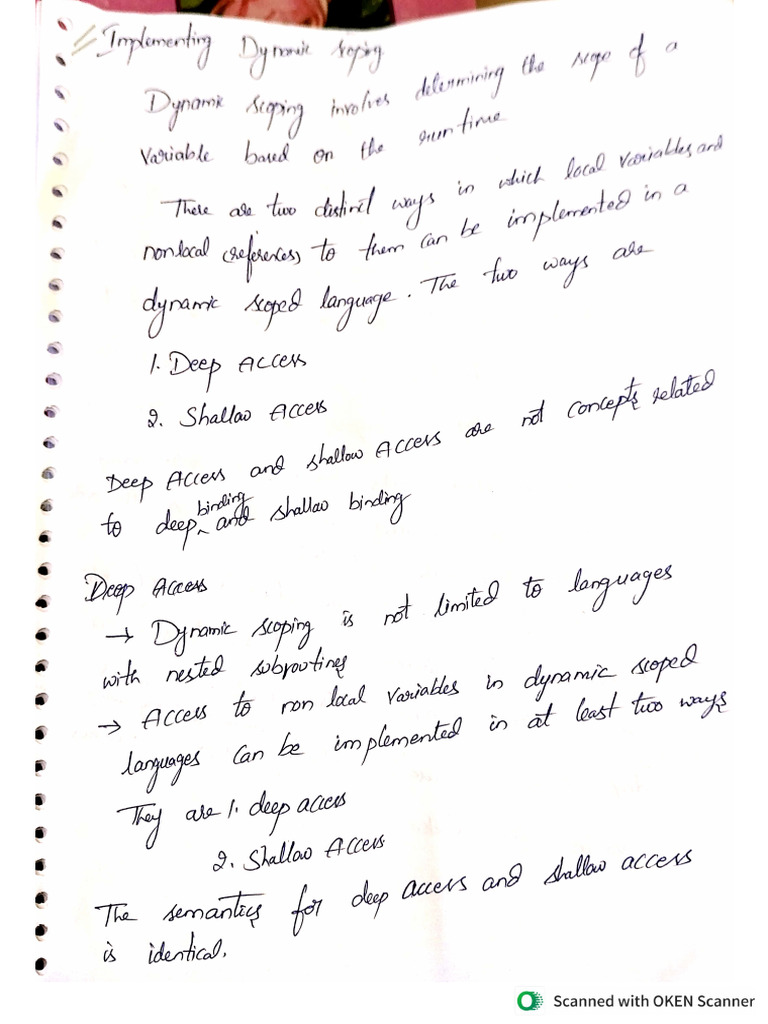 Implementing Dynamic scoping
Dynamic scoping involves determining the scope of a
variable based on the run time
There are two distinct ways in which local variables and
nonlocal (references) to them can be implemented in a
dynamic scoped language. The two ways are
1. Deep Access
2. Shallow Access
Deep Access and shallow Access are not concepts related
to deep binding and shallow binding
Deep Access
→ Dynamic scoping is not limited to languages
with nested subroutines
→ Access to non local variables in dynamic scoped
languages can be implemented in at least two ways
They are 1. deep access
2. Shallow Access
The semantics for deep access and shallow access
is identical.
Scanned with OKEN Scanner